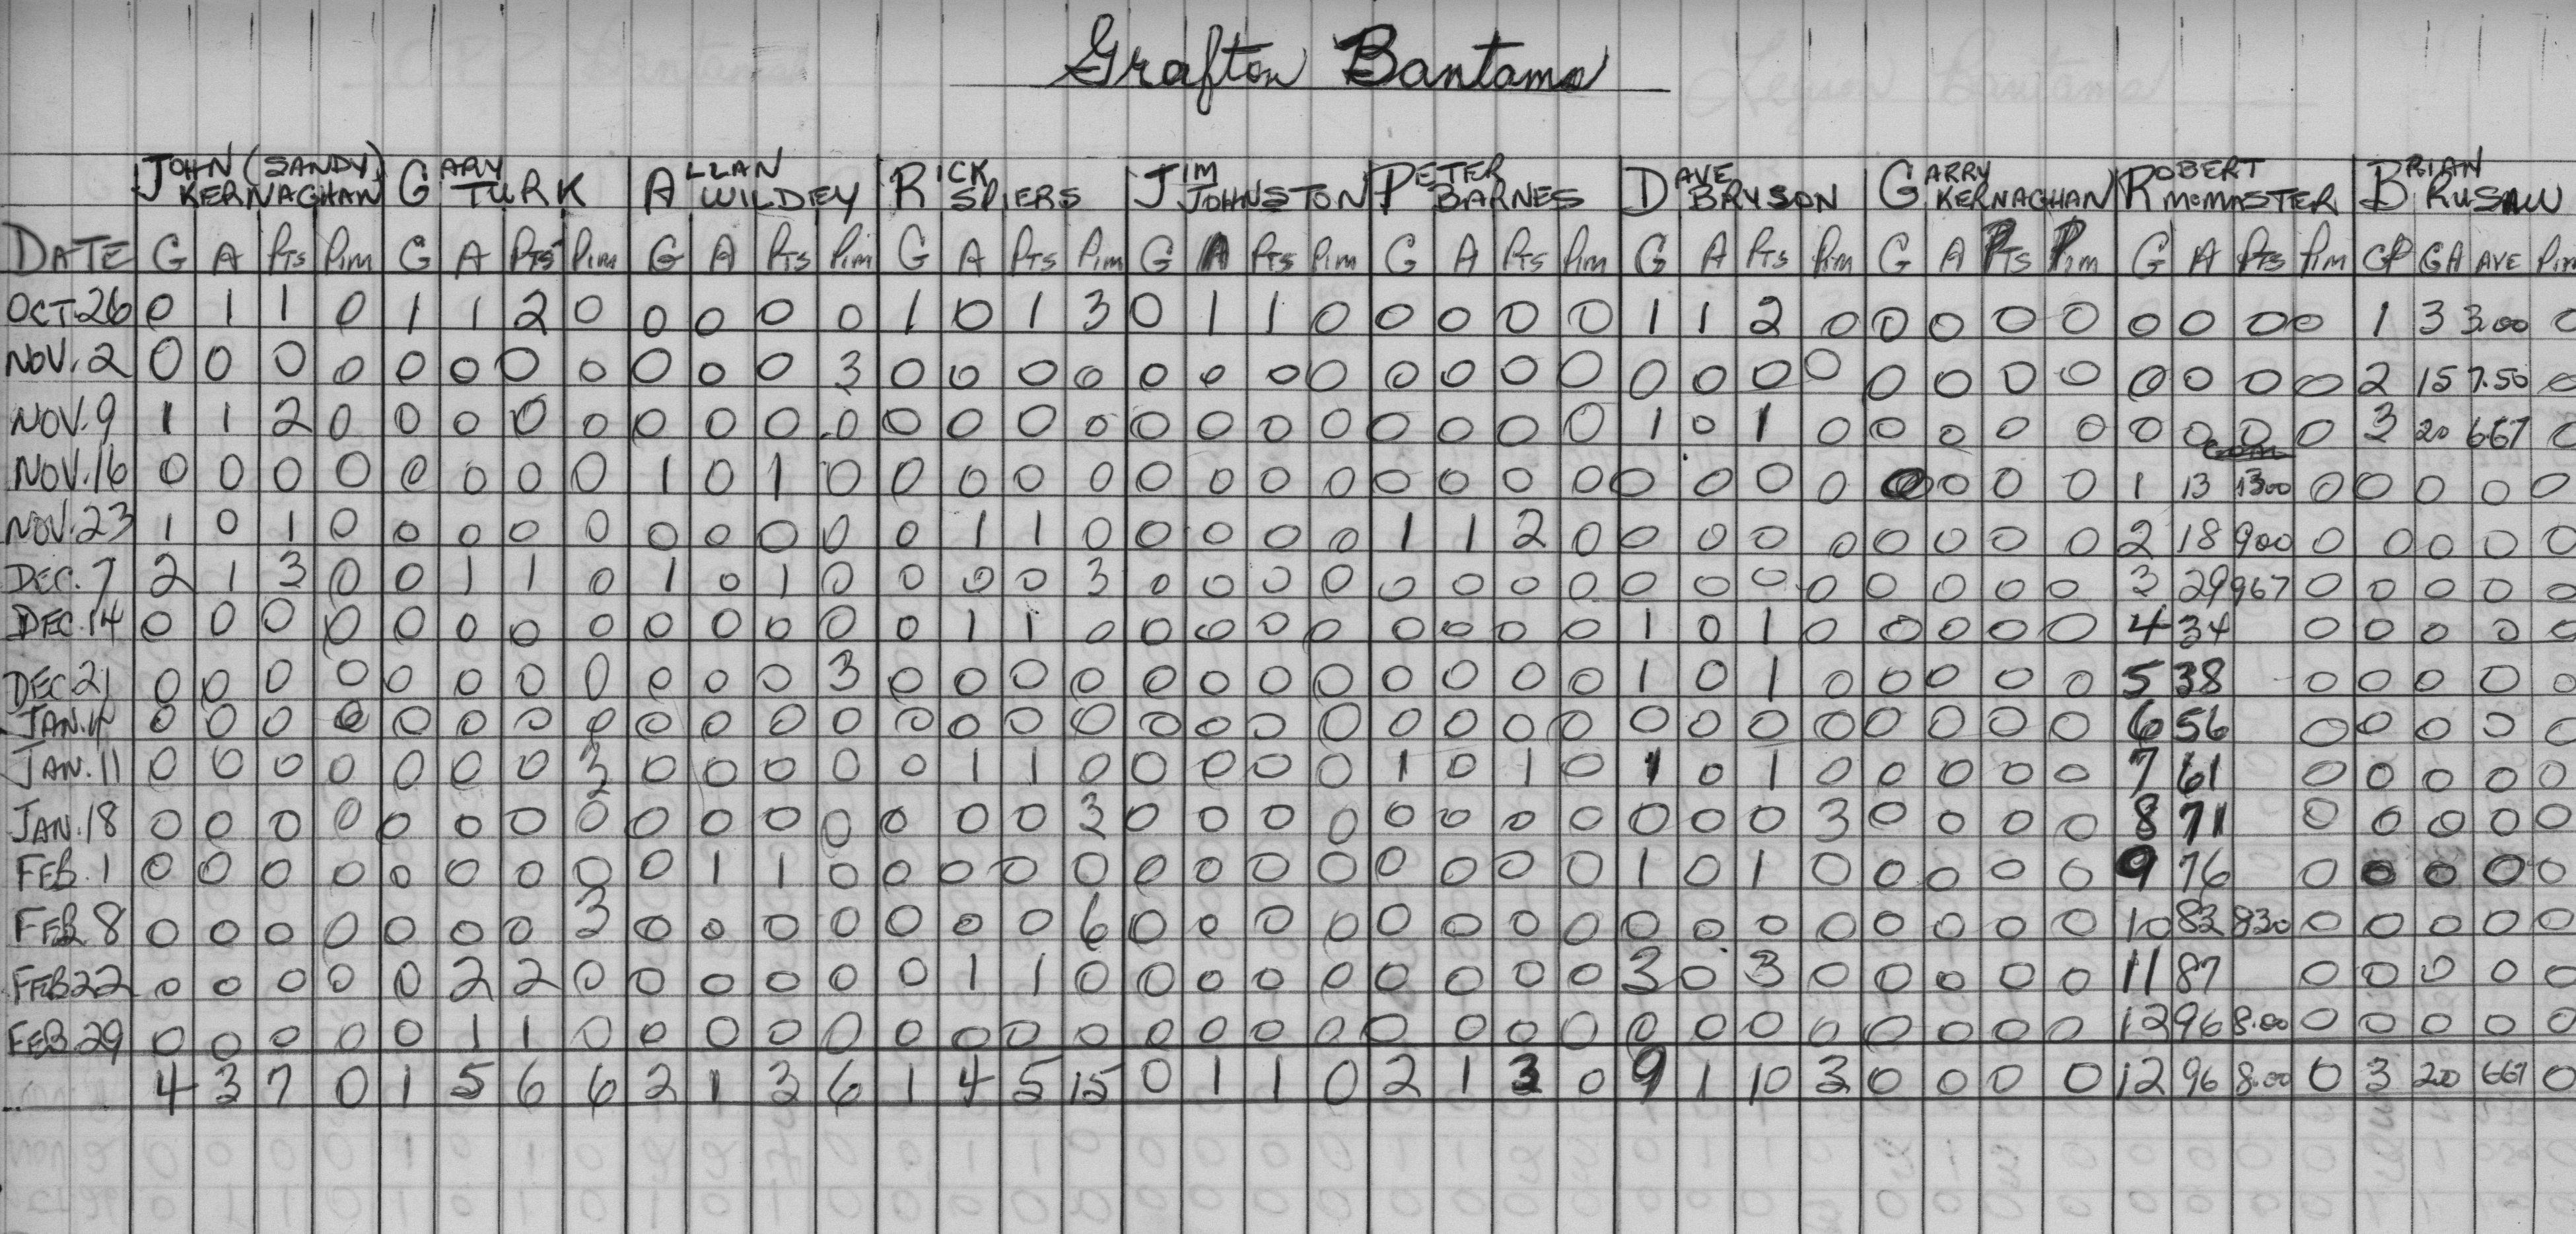 Grafton Bantams
JOHN (SANDY) KERNAGHAN GARY TURK ALLAN WILDEY RICK SPIERS JIM JOHNSTON PETER BARNES DAVE BRYSON GARRY KERNAGHAN ROBERT MCMASTER BRIAN RUSAW
DATE G A Pts Pim G A Pts Pim G A Pts Pim G A Pts Pim G A Pts Pim G A Pts Pim G A Pts Pim G A Pts Pim G A Pts Pim GP GA AVE Pim
OCT.26 0 1 1 0 1 1 2 0 0 0 0 0 1 0 1 3 0 1 1 0 0 0 0 0 1 1 2 0 0 0 0 0 0 0 0 0 1 3 3.00 0
NOV.2 0 0 0 0 0 0 0 0 0 0 0 3 0 0 0 0 0 0 0 0 0 0 0 0 0 0 0 0 0 0 0 0 0 0 0 0 2 15 7.50 0
NOV.9 1 1 2 0 0 0 0 0 0 0 0 0 0 0 0 0 0 0 0 0 0 0 0 0 1 0 1 0 0 0 0 0 0 0 0 0 3 20 667 0
NOV.16 0 0 0 0 0 0 0 0 1 0 1 0 0 0 0 0 0 0 0 0 0 0 0 0 0 0 0 0 0 0 0 0 1 13 1300 0 0 0 0 0
NOV.23 1 0 1 0 0 0 0 0 0 0 0 0 0 1 1 0 0 0 0 0 1 1 2 0 0 0 0 0 0 0 0 0 2 18 900 0 0 0 0 0
DEC.7 2 1 3 0 0 1 1 0 1 0 1 0 0 0 0 3 0 0 0 0 0 0 0 0 0 0 0 0 0 0 0 0 3 29 967 0 0 0 0 0
DEC.14 0 0 0 0 0 0 0 0 0 0 0 0 0 1 1 0 0 0 0 0 0 0 0 0 1 0 1 0 0 0 0 0 4 34 0 0 0 0 0
DEC.21 0 0 0 0 0 0 0 0 0 0 0 3 0 0 0 0 0 0 0 0 0 0 0 0 1 0 1 0 0 0 0 0 5 38 0 0 0 0 0
JAN.4 0 0 0 0 0 0 0 0 0 0 0 0 0 0 0 0 0 0 0 0 0 0 0 0 0 0 0 0 0 0 0 0 6 56 0 0 0 0 0
JAN.11 0 0 0 0 0 0 0 3 0 0 0 0 0 1 1 0 0 0 0 0 1 0 1 0 1 0 1 0 0 0 0 0 7 61 0 0 0 0 0
JAN.18 0 0 0 0 0 0 0 0 0 0 0 0 0 0 0 3 0 0 0 0 0 0 0 0 0 0 0 3 0 0 0 0 8 71 0 0 0 0 0
FEB.1 0 0 0 0 0 0 0 0 0 1 1 0 0 0 0 0 0 0 0 0 0 0 0 0 1 0 1 0 0 0 0 0 9 76 0 0 0 0 0
FEB.8 0 0 0 0 0 0 0 3 0 0 0 0 0 0 0 6 0 0 0 0 0 0 0 0 0 0 0 0 0 0 0 0 10 83 830 0 0 0 0 0
FEB22 0 0 0 0 0 2 2 0 0 0 0 0 0 1 1 0 0 0 0 0 0 0 0 0 3 0 3 0 0 0 0 0 11 87 0 0 0 0 0
FEB.29 0 0 0 0 0 1 1 0 0 0 0 0 0 0 0 0 0 0 0 0 0 0 0 0 0 0 0 0 0 0 0 0 12 96 8.00 0 0 0 0 0
4 3 7 0 1 5 6 6 2 1 3 6 1 4 5 15 0 1 1 0 2 1 3 0 9 1 10 3 0 0 0 0 12 96 8.00 0 3 20 667 0